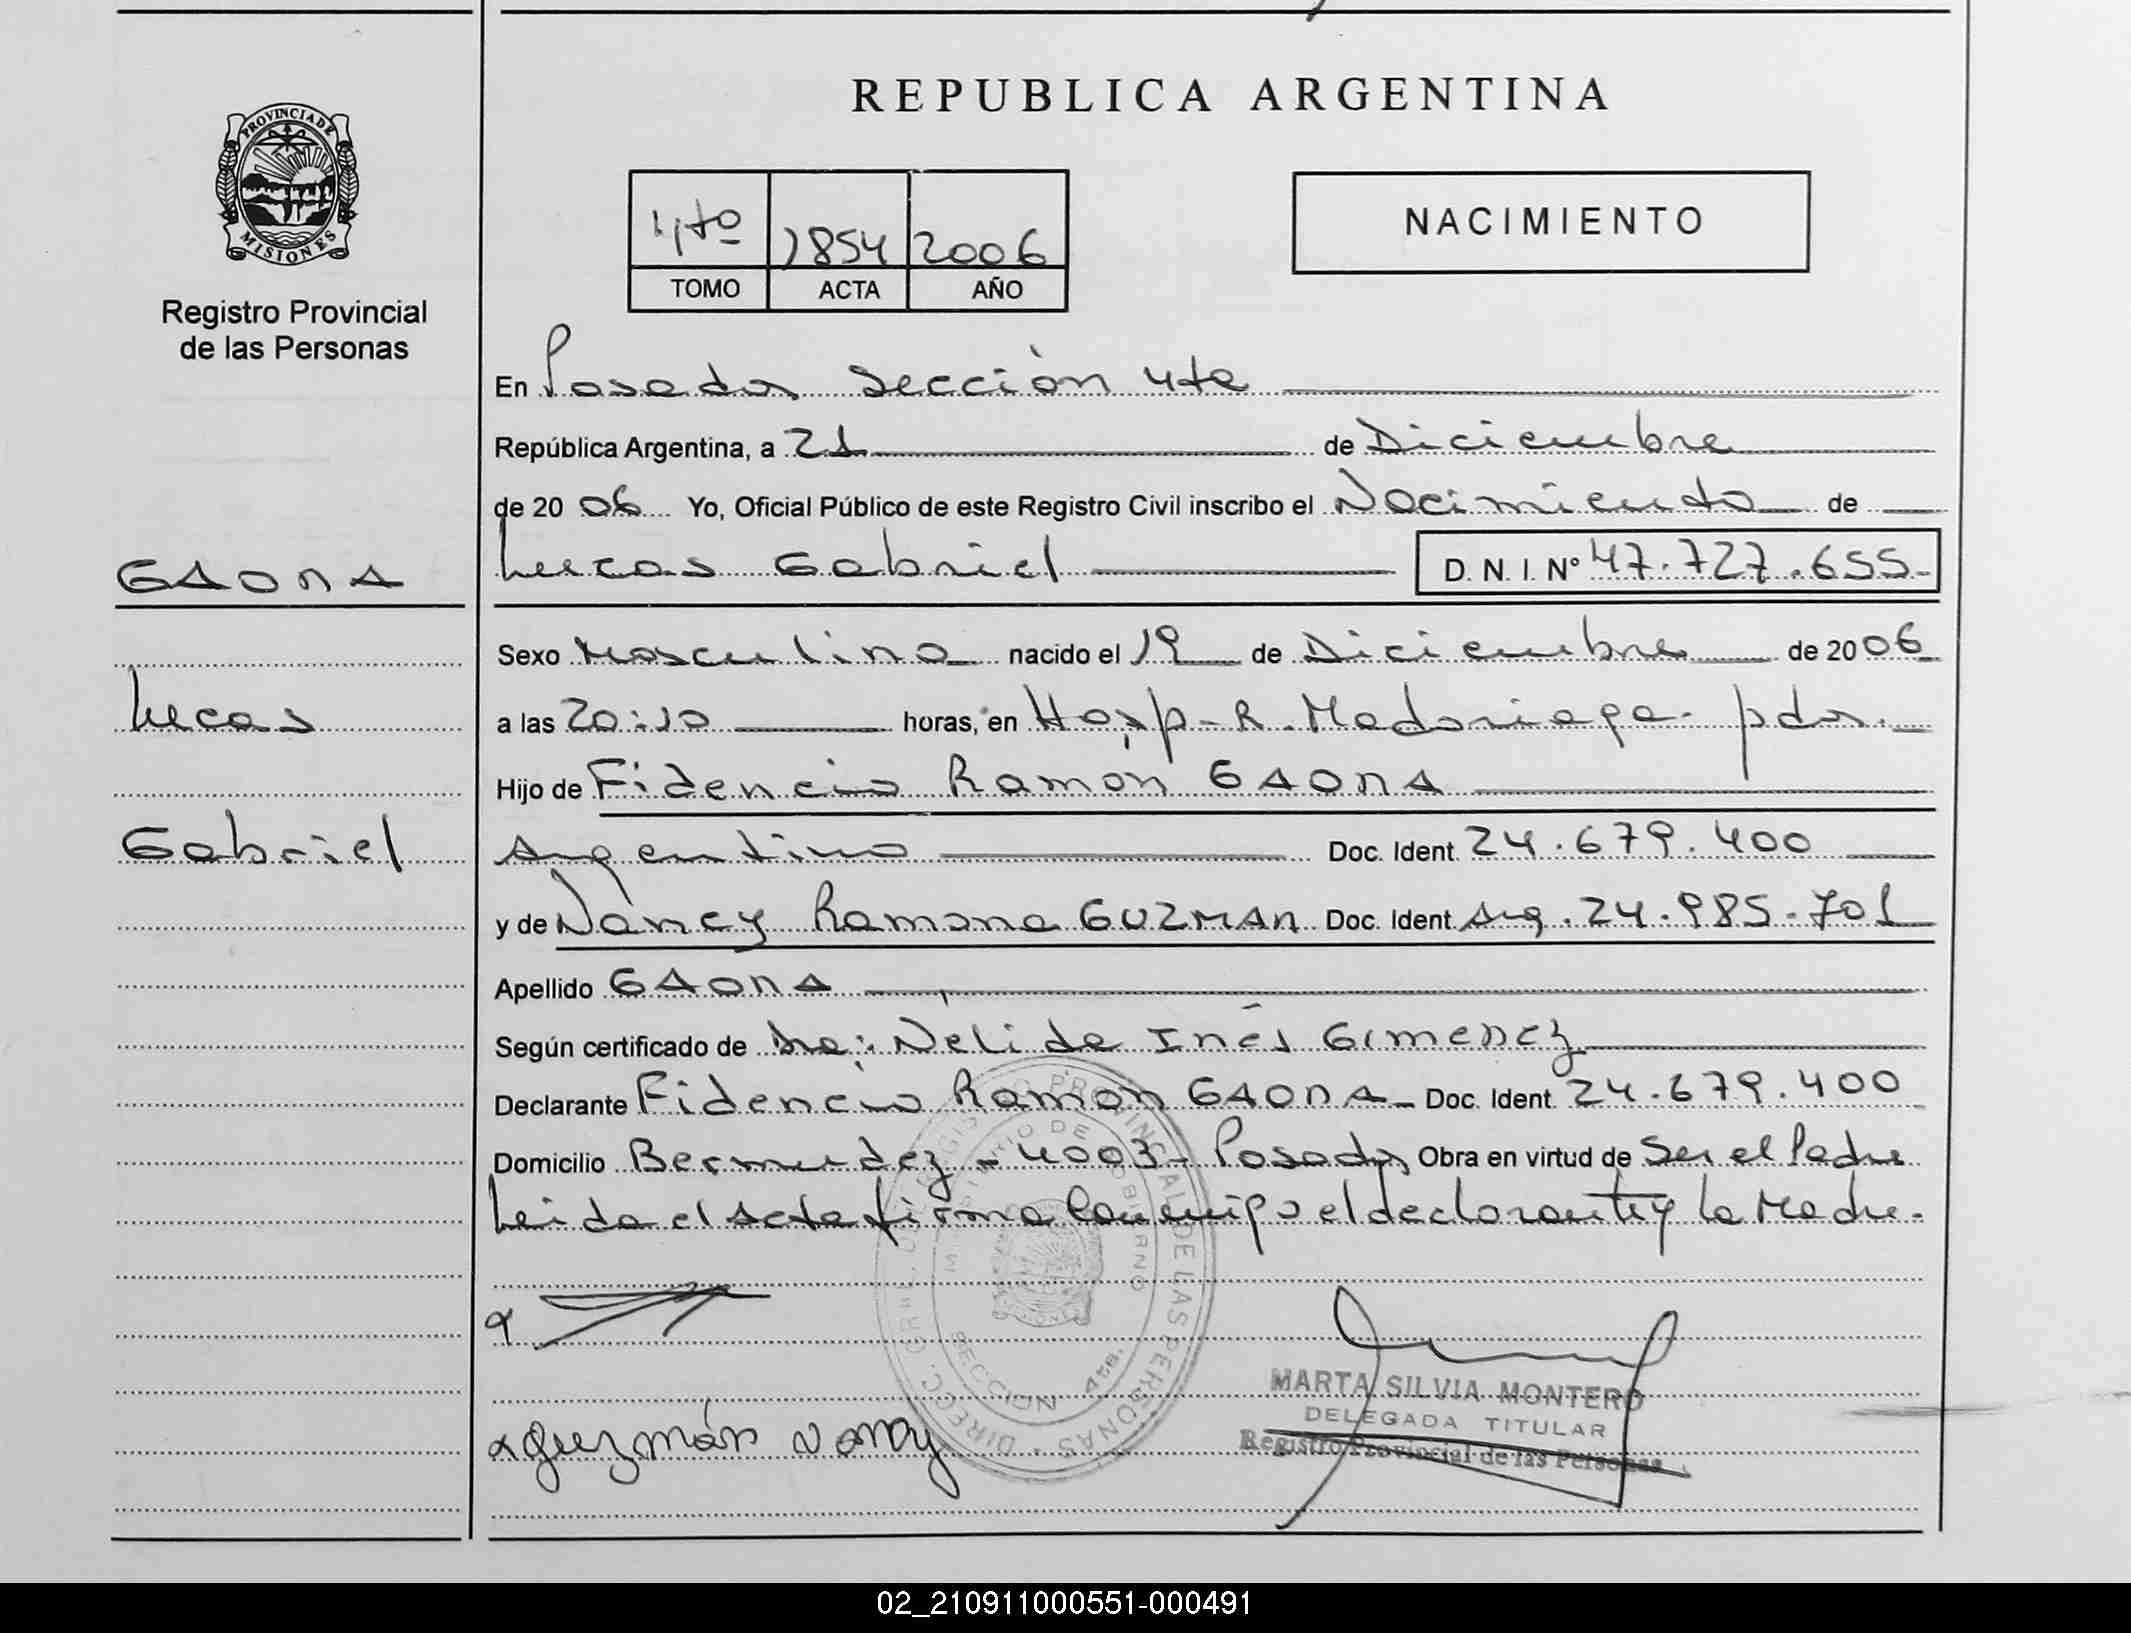 REPUBLICA ARGENTINA
PROVINCIA DE
MISIONES
Registro Provincial
de las Personas
4to 1854 2006
TOMO ACTA AÑO
NACIMIENTO
En Posadas Sección 4ta
República Argentina, a 21 de Diciembre
de 20 06 Yo, Oficial Público de este Registro Civil inscribo el Nacimiento de
GAONA
Lucas Gabriel D. N. I. Nº 47.727.655-
Sexo Masculino nacido el 19 de Diciembre de 20 06
Lucas
a las 20:10 horas, en Hosp-R. Madariaga- pdas.
Hijo de Fidencio Ramón GAONA
Gabriel
Argentino Doc. Ident. 24.679.400
y de Nancy Ramona GUZMAN Doc. Ident. Arg. 24.985.701
Apellido GAONA
Según certificado de Dra: Nélida Inés GIMENEZ
Declarante Fidencio Ramón GAONA- Doc. Ident. 24.679.400
Domicilio Bermudez - 4003- Posadas Obra en virtud de Ser el Padre
Leida el acta firma Conmigo el declarante y la Madre.
DIREC. GRAL. DE REGISTRO PROVINCIAL DE LAS PERSONAS
MINISTERIO DE GOBIERNO
SECCION 4ta.
MARTA SILVIA MONTERO
DELEGADA TITULAR
Registro Provincial de las Personas
Guzmán Nancy
02_210911000551-000491